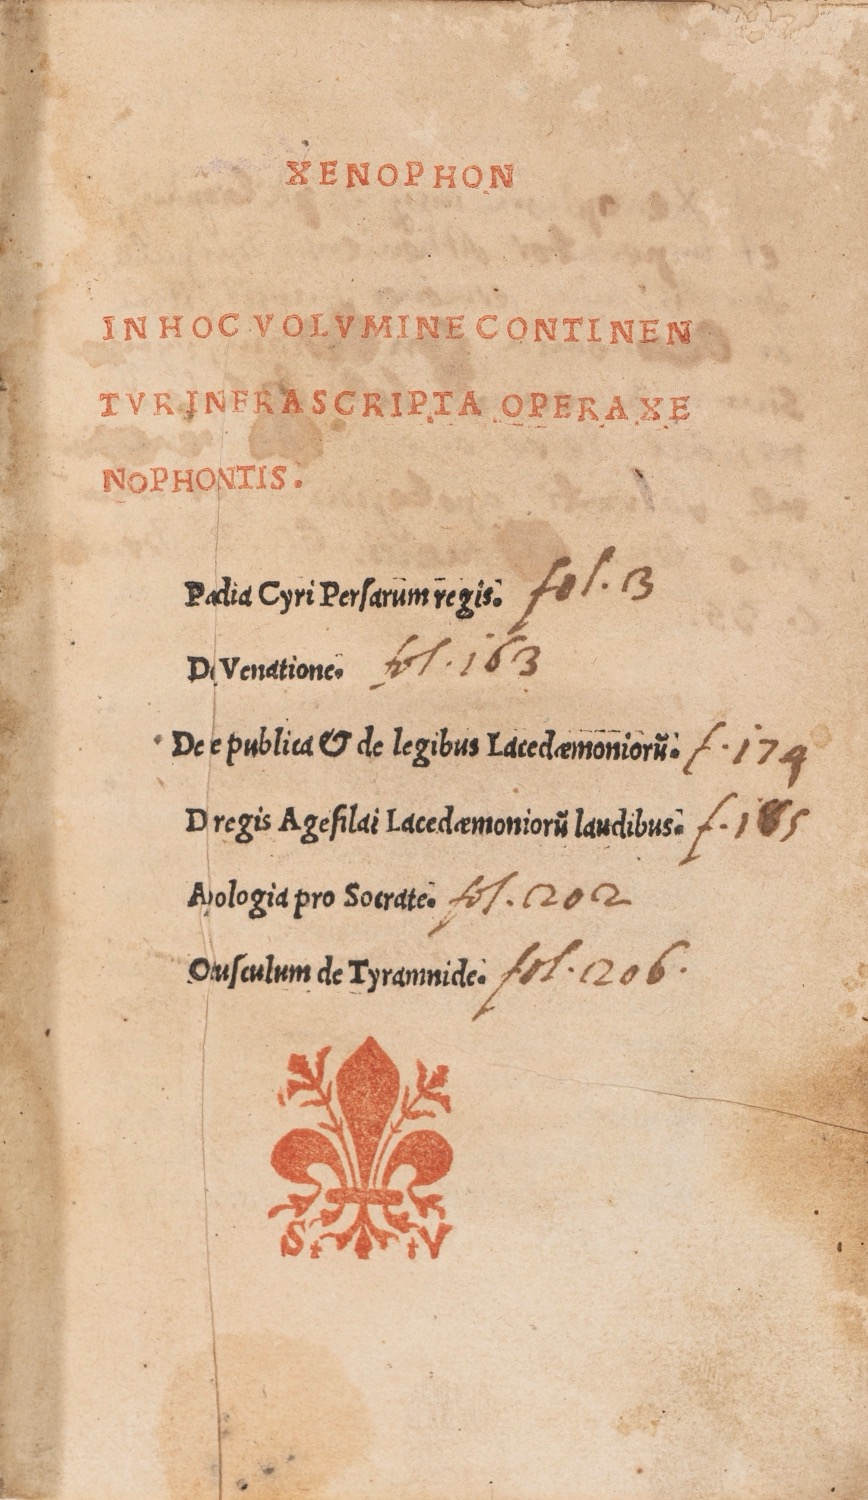 XENOPHON
IN HOC VOLVMINE CONTINEN
TVR INFRASCRIPTA OPERA XE
NOPHONTIS.
Pædia Cyri Persarum regis. fol. 3
De Venatione. fol. 163
De republica & de legibus Lacedæmoniorū. f. 174
De regis Agesilai Lacedæmoniorū laudibus. f. 185
Apologia pro Socrate. fol. 202
Opusculum de Tyrannide. fol. 206.
S. V